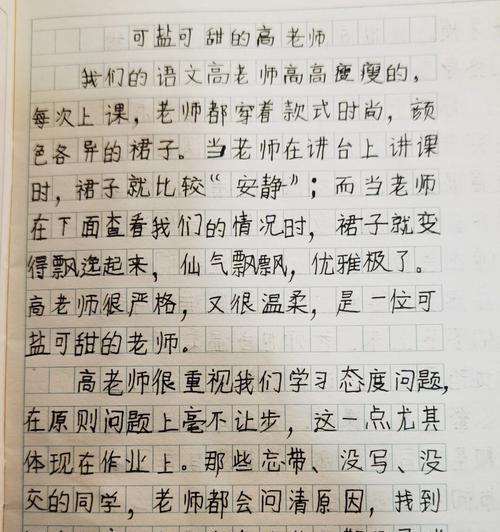 可盐可甜的高老师
我们的语文高老师高高瘦瘦的，
每次上课，老师都穿着款式时尚，颜
色各异的裙子。当老师在讲台上讲课
时，裙子就比较“安静”；而当老师
在下面查看我们的情况时，裙子就变
得飘逸起来，仙气飘飘，优雅极了。
高老师很严格，又很温柔，是一位可
盐可甜的老师。
高老师很重视我们学习态度问题，
在原则问题上毫不让步，这一点尤其
体现在作业上。那些忘带、没写、没
交的同学，老师都会问清原因，找到